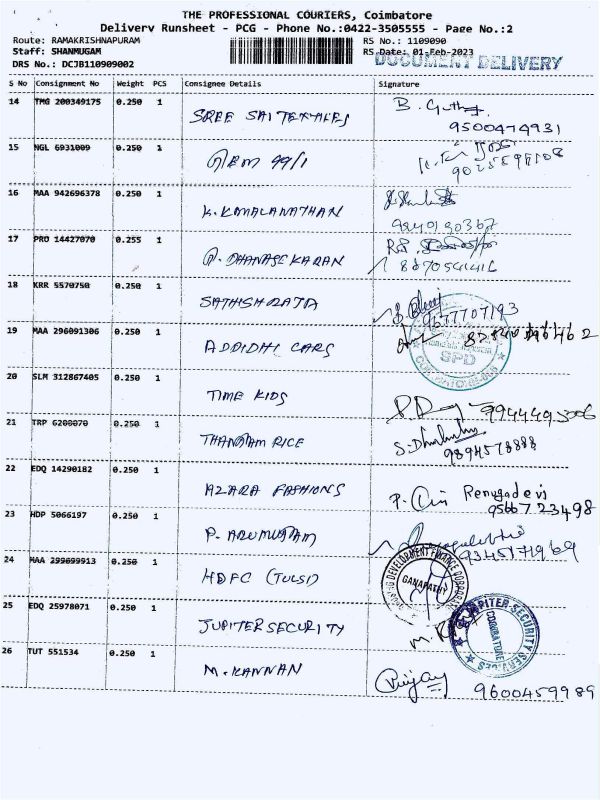 THE PROFESSIONAL COURIERS, Coimbatore
Delivery Runsheet - PCG - Phone No.:0422-3505555 - Page No.:2
Route: RAMAKRISHNAPURAM RS No.: 1109090
Staff: SHANMUGAM RS Date: 01-Feb-2023
DOCUMENT DELIVERY
DRS No.: DCJB110909002
S No Consignment No Weight PCS Consignee Details Signature
14 TMG 200349175 0.250 1 SREE SAI TEXTILES B.
9500474931
15 NGL 6931009 0.250 1 GEM 99/1
16 MAA 942696378 0.250 1 K. KAMALANATHAN
17 PRO 14427070 0.255 1 P. DHANASEKARAN
8870541416
18 KRR 5570750 0.250 1 SATHISH RAJA
9677707193
19 MAA 296091306 0.250 1 ADDIDHI CARS
SPD
20 SLM 312867405 0.250 1 TIME KIDS
9944495006
21 TRP 6200070 0.250 1 THANGAM RICE
9894578888
22 EDQ 14290182 0.250 1 AZARA FASHIONS P. Renugadevi
9566723498
23 HDP 5066197 0.250 1 P. ARUMUGAM
9345171969
24 MAA 299699913 0.250 1 HDFC (TULSI)
HOUSING DEVELOPMENT FINANCE CORPORATION
GANAPATHY
25 EDQ 25978071 0.250 1 JUPITER SECURITY
JUPITER SECURITY SERVICES
COIMBATORE
26 TUT 551534 0.250 1 M. KANNAN
9600459989